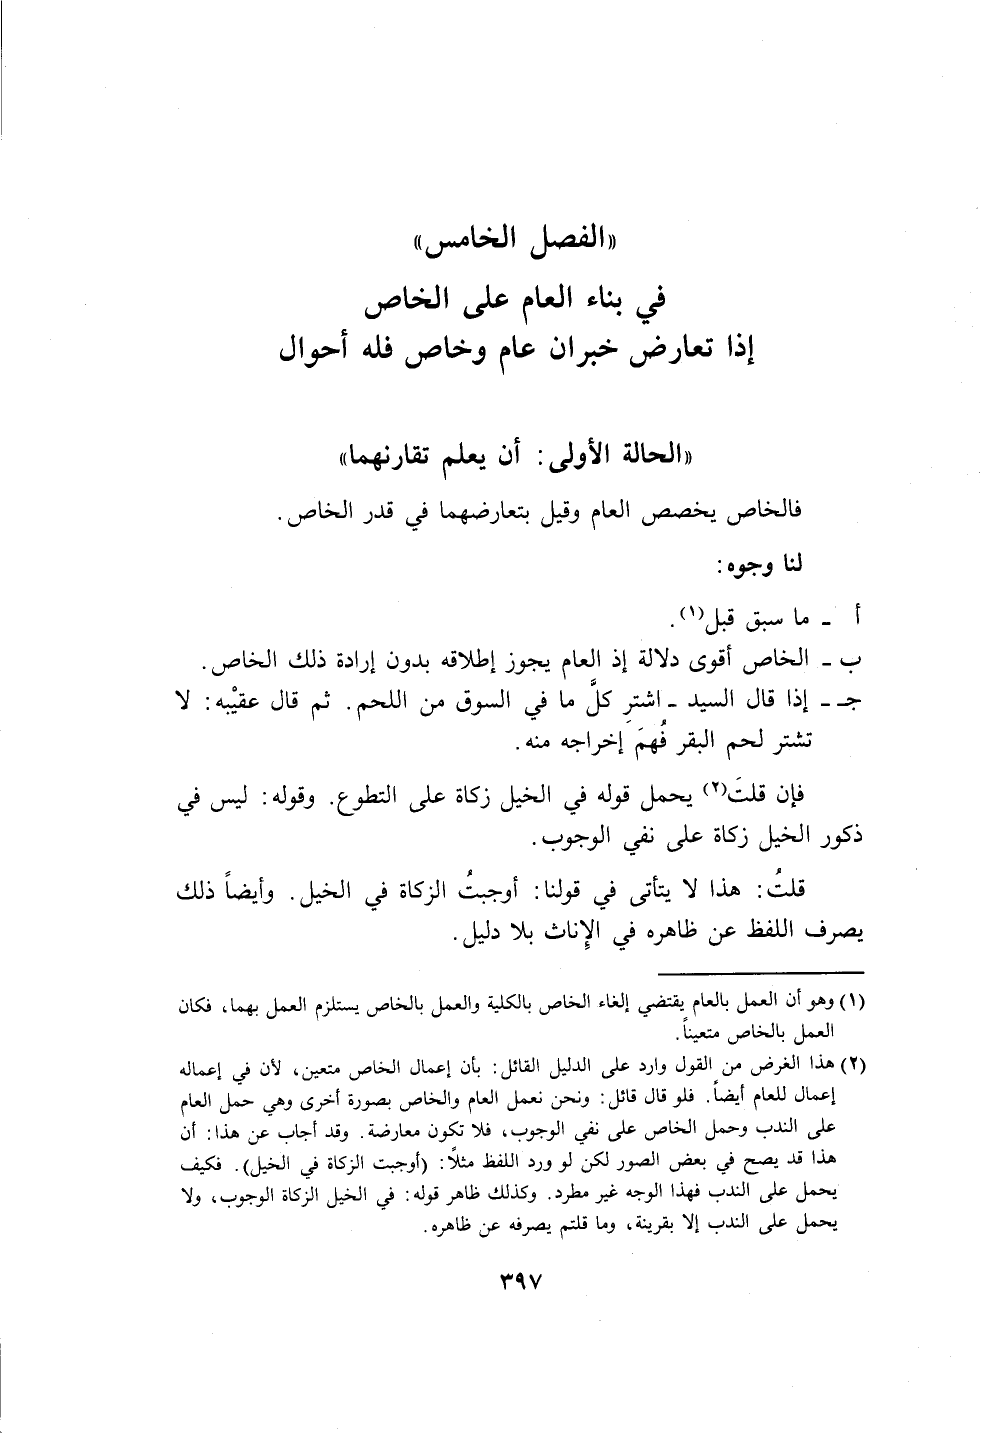 «الفصل الخامس»
في بناء العام على الخاص
إذا تعارض خبران عام وخاص فله أحوال
«الحالة الأولى: أن يعلم تقارنهما»
فالخاص يخصص العام وقيل بتعارضهما في قدر الخاص.
لنا وجوه:
أ ـ ما سبق قبل(١).
ب ـ الخاص أقوى دلالة إذ العام يجوز إطلاقه بدون إرادة ذلك الخاص.
جـ ـ إذا قال السيد ـ اشترِ كلَّ ما في السوق من اللحم. ثم قال عقيْبه: لا
تشتر لحم البقر فُهِمَ إخراجه منه.
فإن قلتَ(٢) يحمل قوله في الخيل زكاة على التطوع. وقوله: ليس في
ذكور الخيل زكاة على نفي الوجوب.
قلتُ: هذا لا يتأتى في قولنا: أوجبتُ الزكاة في الخيل. وأيضاً ذلك
يصرف اللفظ عن ظاهره في الإناث بلا دليل.
(١) وهو أن العمل بالعام يقتضي إلغاء الخاص بالكلية والعمل بالخاص يستلزم العمل بهما، فكان
العمل بالخاص متعيناً.
(٢) هذا الغرض من القول وارد على الدليل القائل: بأن إعمال الخاص متعين، لأن في إعماله
إعمال للعام أيضاً. فلو قال قائل: ونحن نعمل العام والخاص بصورة أخرى وهي حمل العام
على الندب وحمل الخاص على نفي الوجوب، فلا تكون معارضة. وقد أجاب عن هذا: أن
هذا قد يصح في بعض الصور لكن لو ورد اللفظ مثلاً: (أوجبت الزكاة في الخيل). فكيف
يحمل على الندب فهذا الوجه غير مطرد. وكذلك ظاهر قوله: في الخيل الزكاة الوجوب، ولا
يحمل على الندب إلا بقرينة، وما قلتم يصرفه عن ظاهره.
٣٩٧